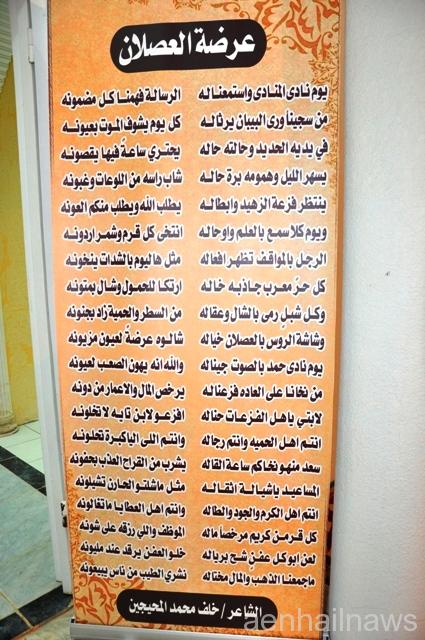 عرضة العصلان
يوم نادى المنادى واستمعنا له الرسالة فهمنا كل مضمونه
من سجينٍ ورى البيبان يرثاله كل يوم يشوف الموت بعيونه
في يديه الحديد وحالته حاله يحتري ساعةً فيها يفصونه
يسهر الليل وهمومه برة حاله شاب راسه من اللوعات وغبونه
ينتظر فزعة الزهيد وابطاله يطلب الله ويطلب منكم العونه
ويوم كلا سمع بالعلم واوحاله انتخى كل قرم وشمر اردونه
الرجل بالمواقف تظهر افعاله مثل هاليوم بالشدات ينخونه
كل حرٌ معرب جاذبه خاله ارتكا للحمول وشال بمتونه
وكل شبلٍ رمى بالشال وعقاله من السطر والحمية زاد بجنونه
وشاشة الروس بالعصلان خياله شالوه عرضةً لعيون مزيونه
يوم نادى حمد بالصوت جيناله والله انه يهون الصعب لعيونه
من نخانا على العاده فزعناله يرخص المال والاعمار من دونه
لابتي ياهل الفزعات حناله افزعو لابن نايه لا تخلونه
انتم اهل الحميه وانتم رجاله وانتم اللي الياكبرة تحلونه
سعد منهو نخاكم ساعة القاله يشرب من القراح العذب بحفونه
المساعيد ياشيالة اثقاله مثل ماشلتو الحارن تشيلونه
انتم اهل الكرم والجود والطاله وانتم اهل العطايا ما تغالونه
كل قرمن كريم مرخصاً ماله الموظف واللي رزقه على شونه
لعن ابو كل عفنٍ شح برياله خلو العفن يرقد عند مليونه
ماجمعنا الذهب والمال مختاله نشري الطيب من ناس يبيعونه
الشاعر / خلف محمد المحيجين
aenhailnaws